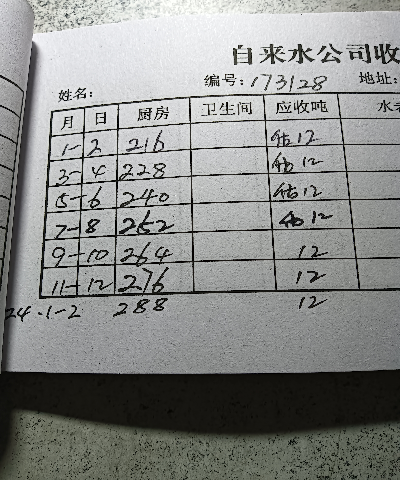 自来水公司收
姓名: 编号: 173128 地址:
月 日 厨房 卫生间 应收吨 水
1-2 216 估12
3-4 228 估12
5-6 240 估12
7-8 252 估12
9-10 264 12
11-12 276 12
24.1-2 288 12